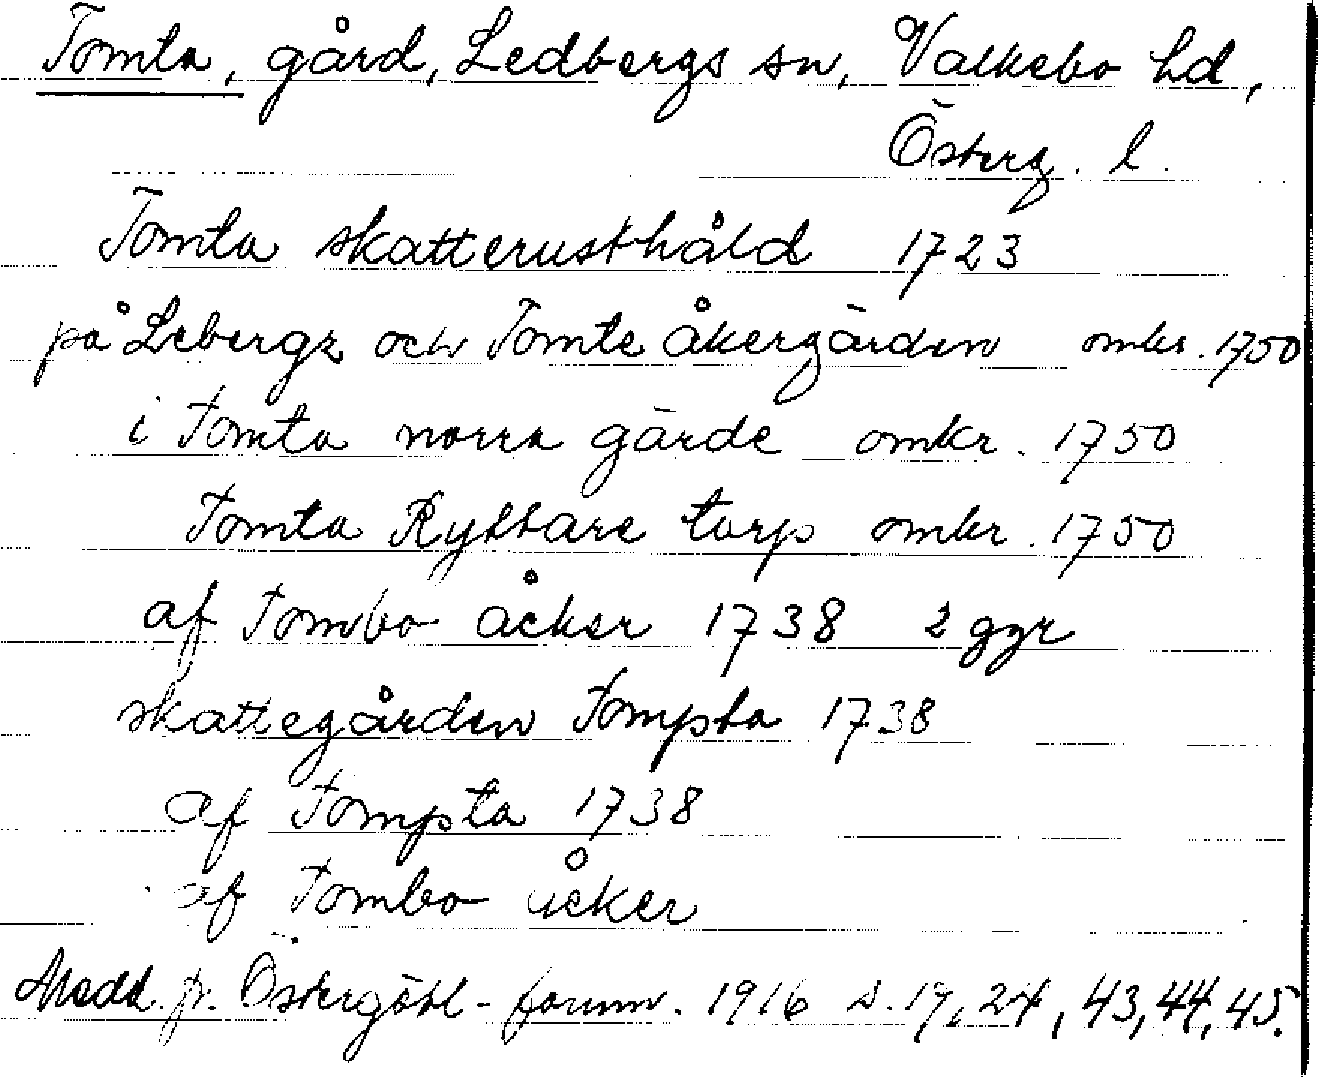 Tomta, gård, Ledbergs sn, Valkebo hd,
Österg. l.
Tomta skatterusthåld 1723
på Lebergz och Tomte åkergärden omkr. 1750
i Tomta norra gärde omkr. 1750
Tomta Ryttare torp omkr. 1750
af Tombo åcker 1738 2 ggr
skattegården Tompta 1738
af Tompta 1738
af Tombo åcker
Medd. fr. Östergötl-fornm. 1916 s. 17, 24, 43, 44, 45.